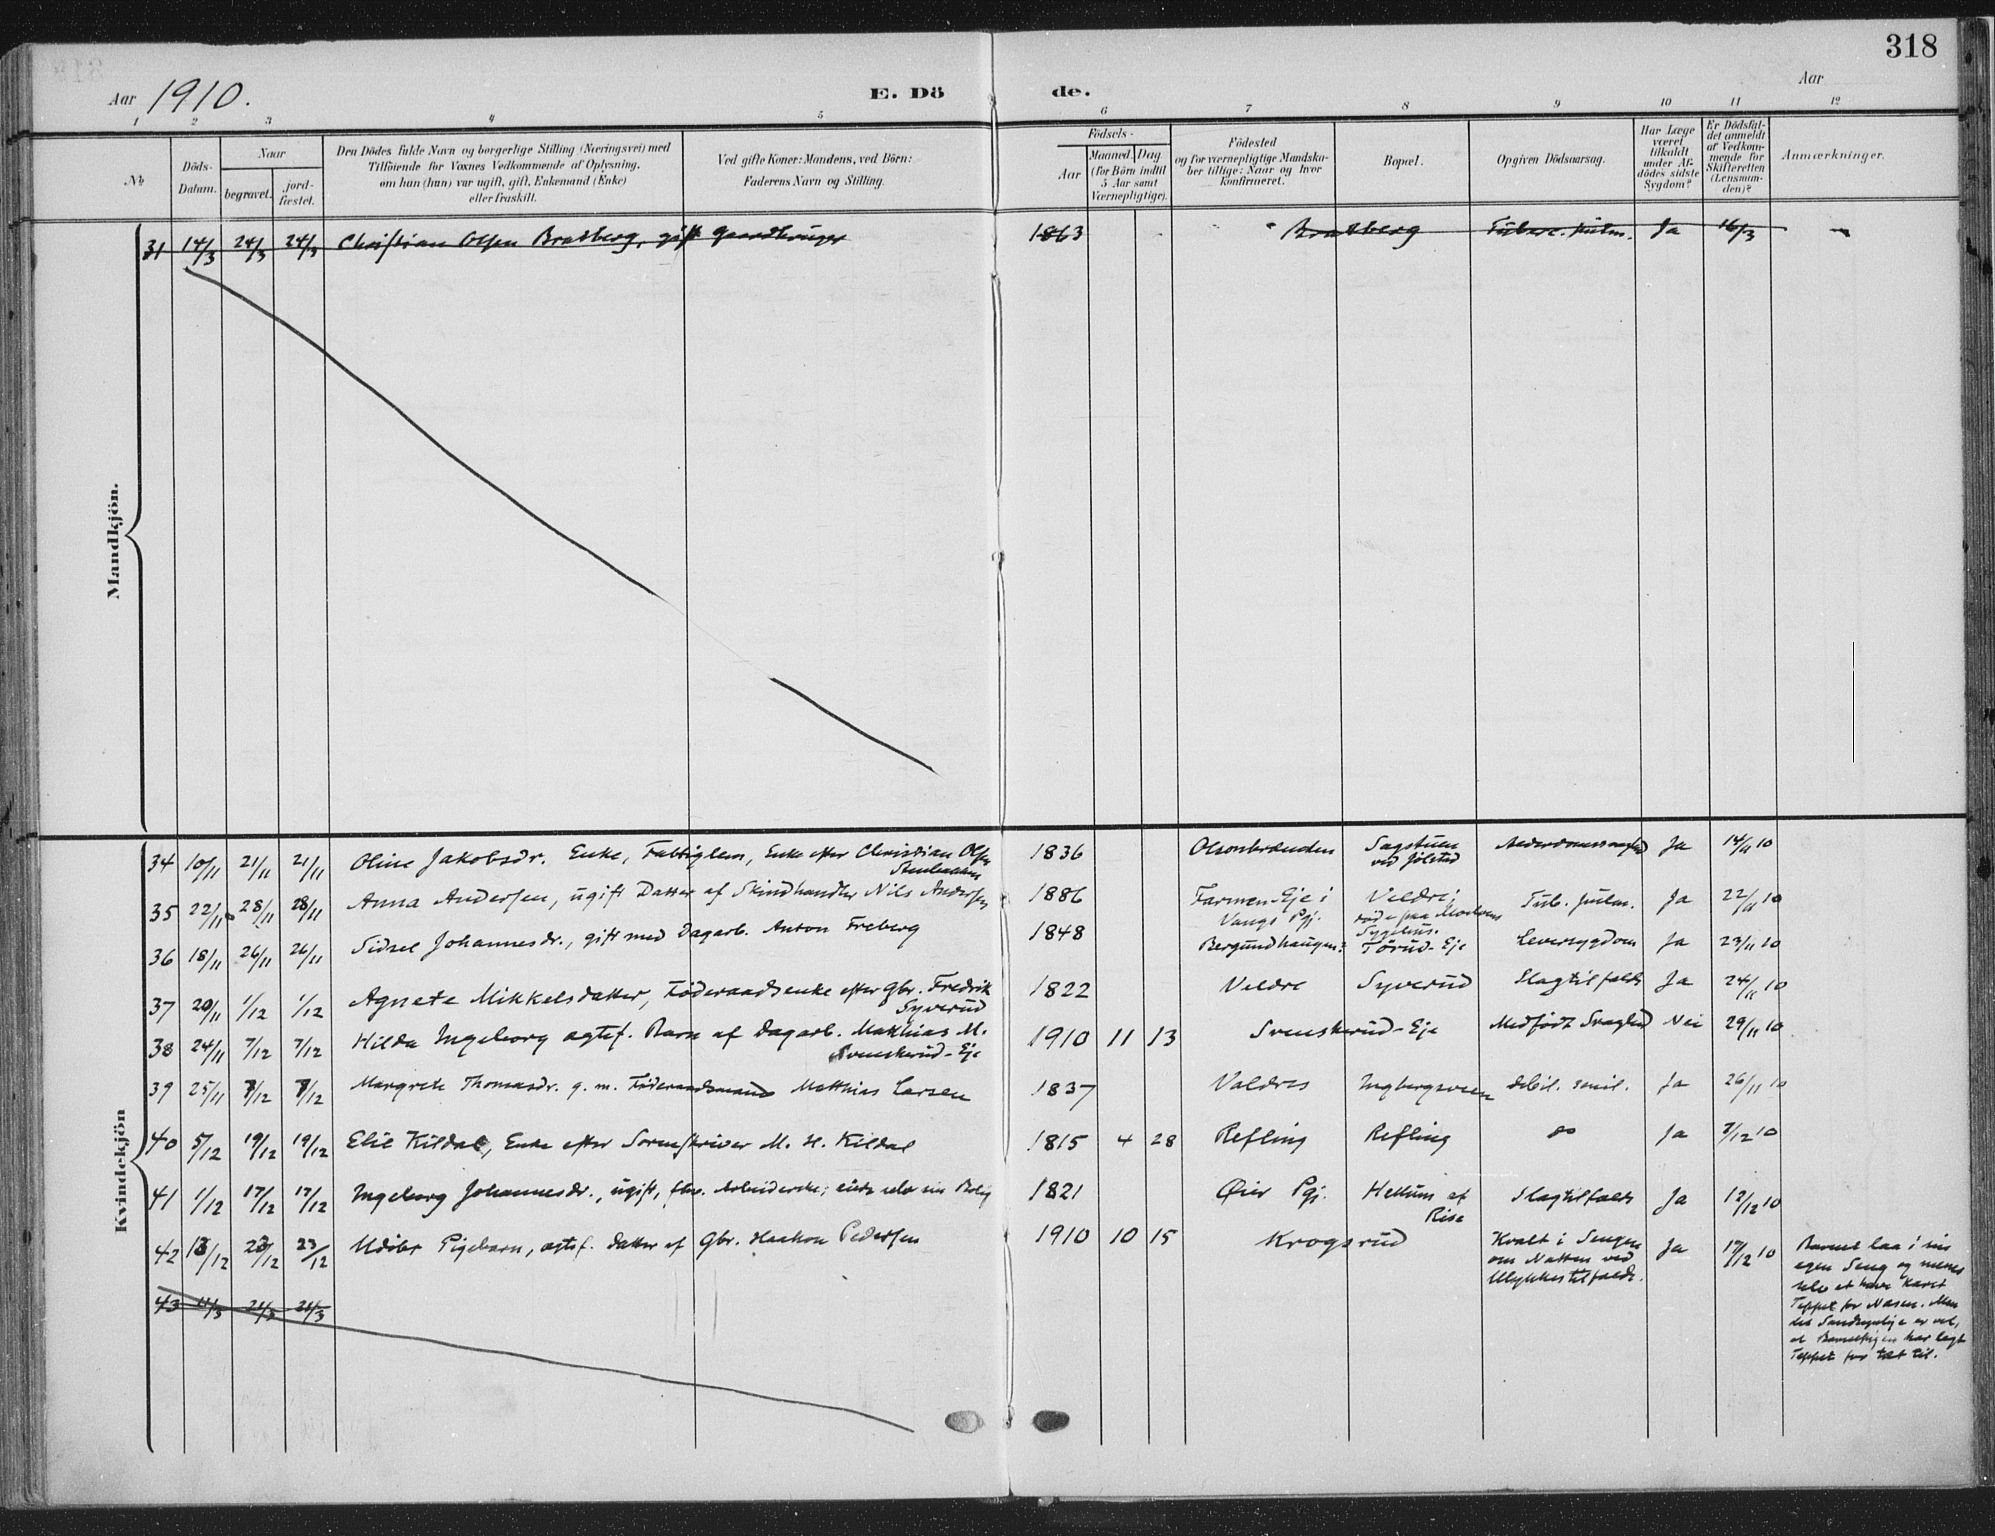 318
Aar 1910.
E. Dö de.
Aar
1 2 3 4 5 6 7 8 9 10 11 12
No
Döds-Datum.
Naar
begravet.
jord-fæstet.
Den Dödes fulde Navn og borgerlige Stilling (Næringsvei) med
Tilföiende for Voxnes Vedkommende af Oplysning,
om han (hun) var ugift, gift, Enkemand (Enke)
eller fraskilt.
Ved gifte Koner: Mandens, ved Börn:
Faderens Navn og Stilling.
Födsels-
Aar
Maaned. Dag.
(for Börn indtil
5 Aar samt
Værnepligtige).
Födested
og for værnepligtige Mandska-
ber tillige: Naar og hvor
konfirmeret.
Bopæl.
Opgiven Dödsaarsag.
Har Læge
været
tilkaldt
under Af-
dödes sidste
Sygdom?
Er Dödsfal-
det anmeldt
af Vedkom-
mende for
Skifteretten
(Lensman-
den)?
Anmærkninger.
Mandkjön.
31 14/3 24/3 24/3 Christian Olsen Bratberg, gift Gaardbruger 1863 Bratberg Ja 16/3
Kvindekjön
34 10/11 21/11 21/11 Oline Jakobsdr. Enke, Fattiglem, Enke efter Christian Olsen 1836 Sagstuen Ja 14/11 10
ved Jølstad
35 22/11 28/11 28/11 Anna Andersen, ugift Datter af Skindhandler Nils Andersen 1886 Farmen-Eje i Veldre; Tub. pulm. Ja 22/11 10
Vangs Pgj. døde paa
Sygehus.
36 18/11 26/11 26/11 Sidsel Johannesdr., gift med Dagarb. Anton Freberg 1848 Tørud-Eje Leversygdom Ja 23/11 10
37 20/11 1/12 1/12 Agnete Mikkelsdatter, Føderaadsenke efter Gbr. Fredrik 1822 Veldre Syverud Slagtilfælde Ja 24/11 10
Syverud
38 24/11 7/12 7/12 Hilda Ingeborg ægtef. Barn af Dagarb. Matthias M. 1910 11 13 Svenskerud-Eje Medfødt Svaghed Nei 29/11 10
Svenskerud-Eje
39 25/11 7/12 7/12 Margrete Thomasdr. g. m. Føderaadsmand Matthias Larsen 1837 Valdres debil. senil. Ja 26/11 10
40 5/12 19/12 19/12 Elie Kildal, Enke efter Sorenskriver M. H. Kildal 1815 4 28 Refling Refling do Ja 7/12 10
41 1/12 17/12 17/12 Ingeborg Johannesdr., ugift, Arbeiderske; 1821 Øier Pgj. Hellum af Slagtilfælde Ja 12/12 10
Rise
42 13/12 23/12 23/12 Udøbt Pigebarn, ægtef. Datter af Gbr. Haakon Pedersen 1910 10 15 Krogsrud Kvalt i Sengen Ja 17/12 10 Barnet laa i sin
om Natten ved egen Seng og menes
Ulykkestilfælde. selv at have karet
Teppet for Næsen. Men
det Sandsynlige er vel,
at Barnepigen har lagt
Teppet for tæt til.
43 11/3 21/3 21/3